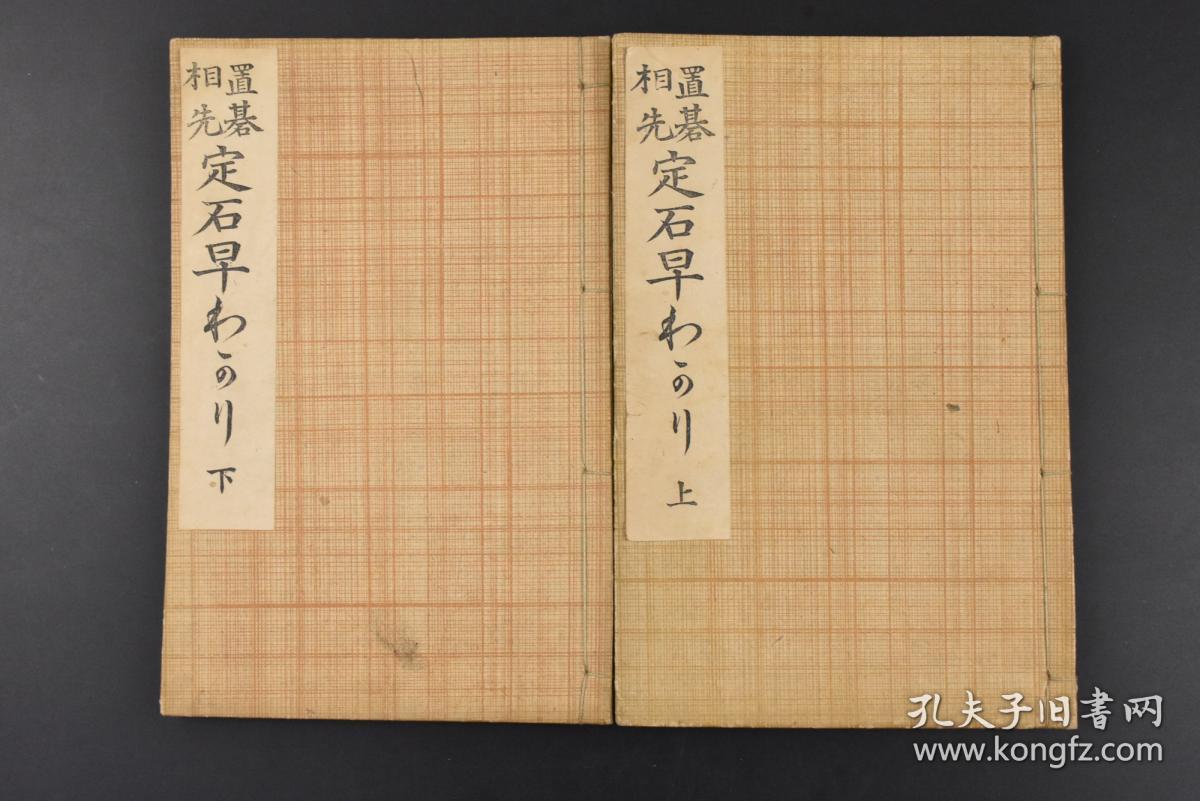 置碁
相先
定石早わかり 上
置碁
相先
定石早わかり 下
孔夫子旧書网
www.kongfz.com